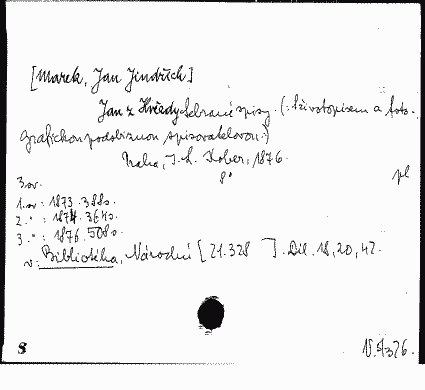 [Marek, Jan Jindřich]
Jan z Hvězdy Sebrané spisy. (: S životopisem a foto-
grafickou podobiznou spisovatelovou:)
Praha, I. L. Kober, 1876.
8°
pl
3 sv.
1. sv: 1873. 388 s.
2. " : 1874. 364 s.
3. " : 1876. 508 s.
v: Bibliotéka, Národní [21.328 ]. Díl. 18, 20, 42.
8